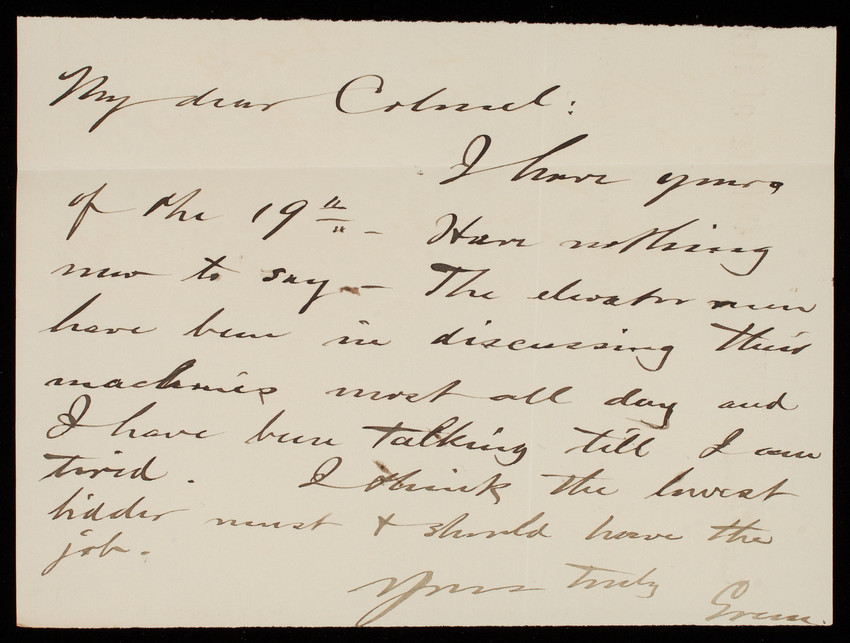 My dear Colonel:
I have yours
of the 19th - Have nothing
new to say - The elevator men
have been in discussing their
machines most all day and
I have been talking till I am
tired. I think the lowest
bidder must & should have the
job.
Yours truly
Green.